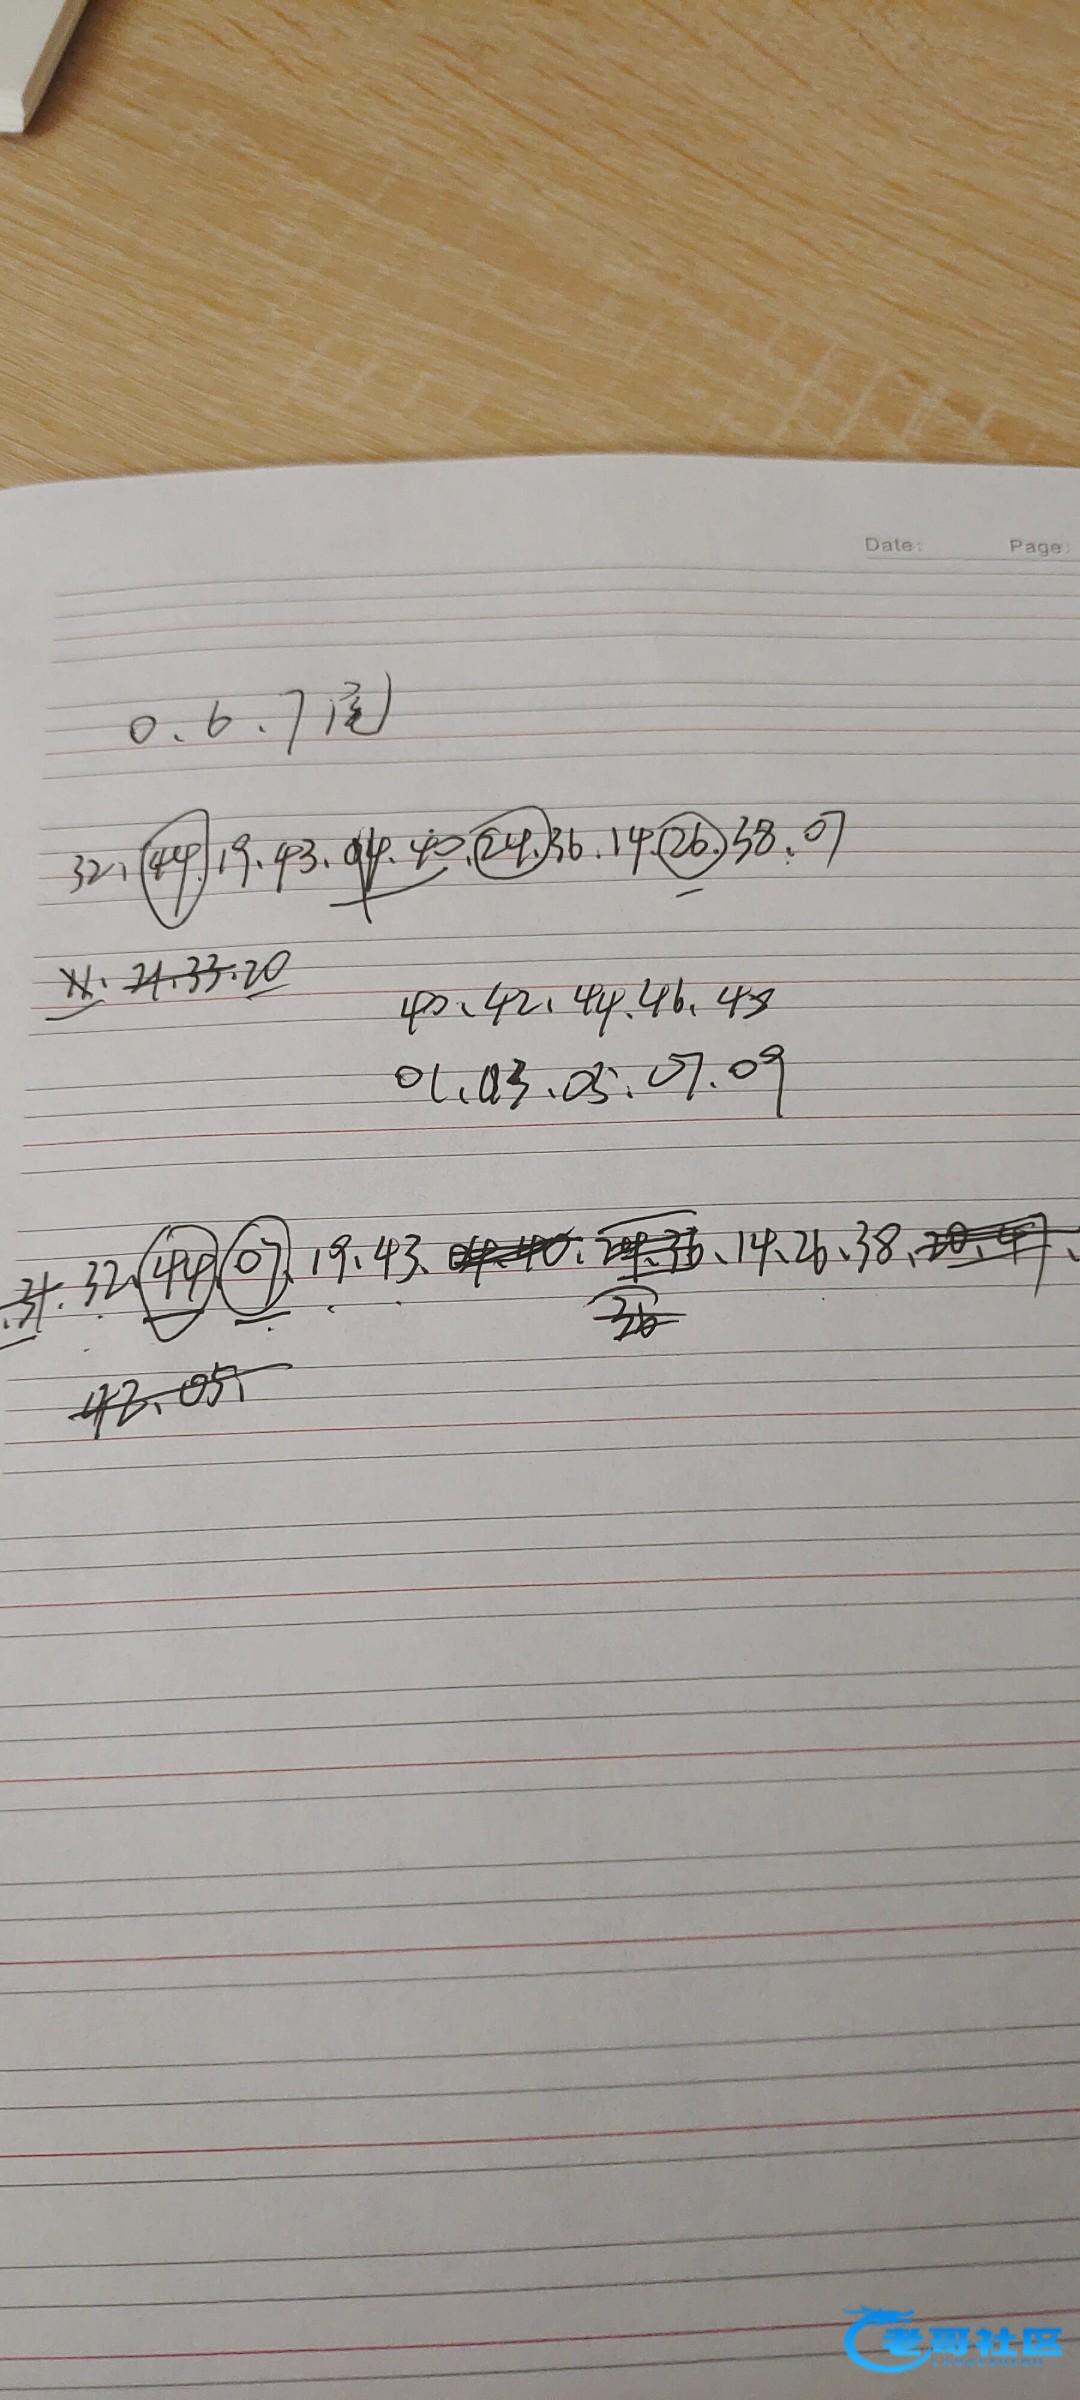 Date: Page:
0.6.7尾
32、44.19.43.04.40.24.36.14.26.38.07
21.33.20
40、42、44、46、48
01、03、05、07.09
31.32.44.07.19.43、04.40.24.36、14、26、38、20.41、
36
42、05、
老哥社区